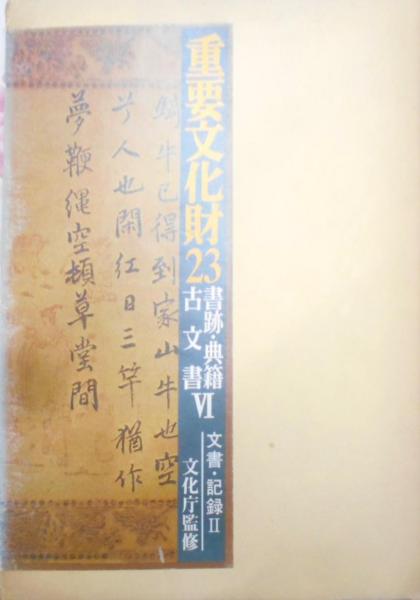 重要文化財23
書跡・典籍
古文書 VI
文書・記録II
文化庁監修
騎牛已得到家山牛也空
兮人也閑紅日三竿猶作
夢鞭縄空頓草堂間